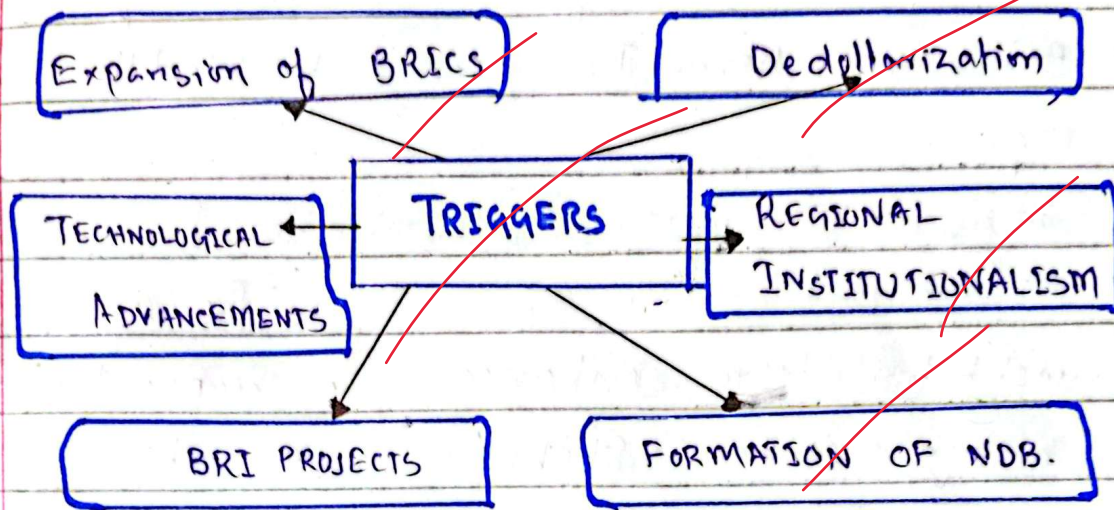 Expansion of BRICS
Dedollarization
TRIGGERS
TECHNOLOGICAL
ADVANCEMENTS
REGIONAL
INSTITUTIONALISM
BRI PROJECTS
FORMATION OF NDB.